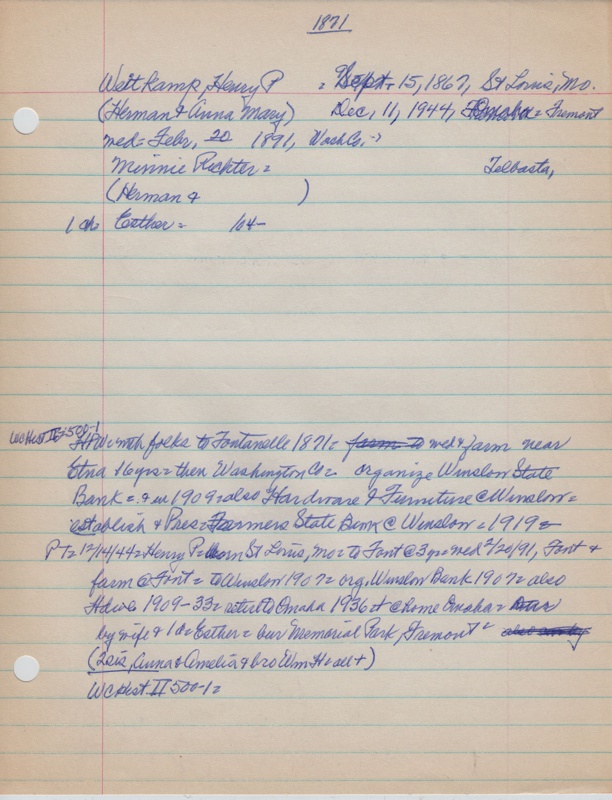 1871
Weitkamp, Henry P = Sept. 15, 1867, St Louis, Mo.
(Herman & Anna Mary) Dec, 11, 1944, Omaha = Fremont
wed = Febr, 20 1891, WashCo. →
Minnie Richter = Telbasta,
(Herman & )
1 ch = Esther = 104-
WCHist II-500-1
HPW with folks to Fontanelle 1871 = farm to wed & farm near
Etna 16 yrs = then Washington Co = organize Winslow State
Bank = & in 1909 = also Hardware & Furniture @ Winslow =
establish & Pres = Farmers State Bank @ Winslow = 1919 =
PT = 12/14/44 = Henry P = born St Louis, Mo = to Font @ 3 yr = wed 2/20/91, Font &
farm @ Font = to Winslow 1907 = org. Winslow Bank 1907 = also
Hdwe 1909-33 = retired to Omaha 1936 + @ home Omaha =
by wife & 1 d = Esther = bur Memorial Park, Fremont = also sur by
(2 sis, Anna & Amelia & bro Wm H = all +)
WCHist. II 500-1 =